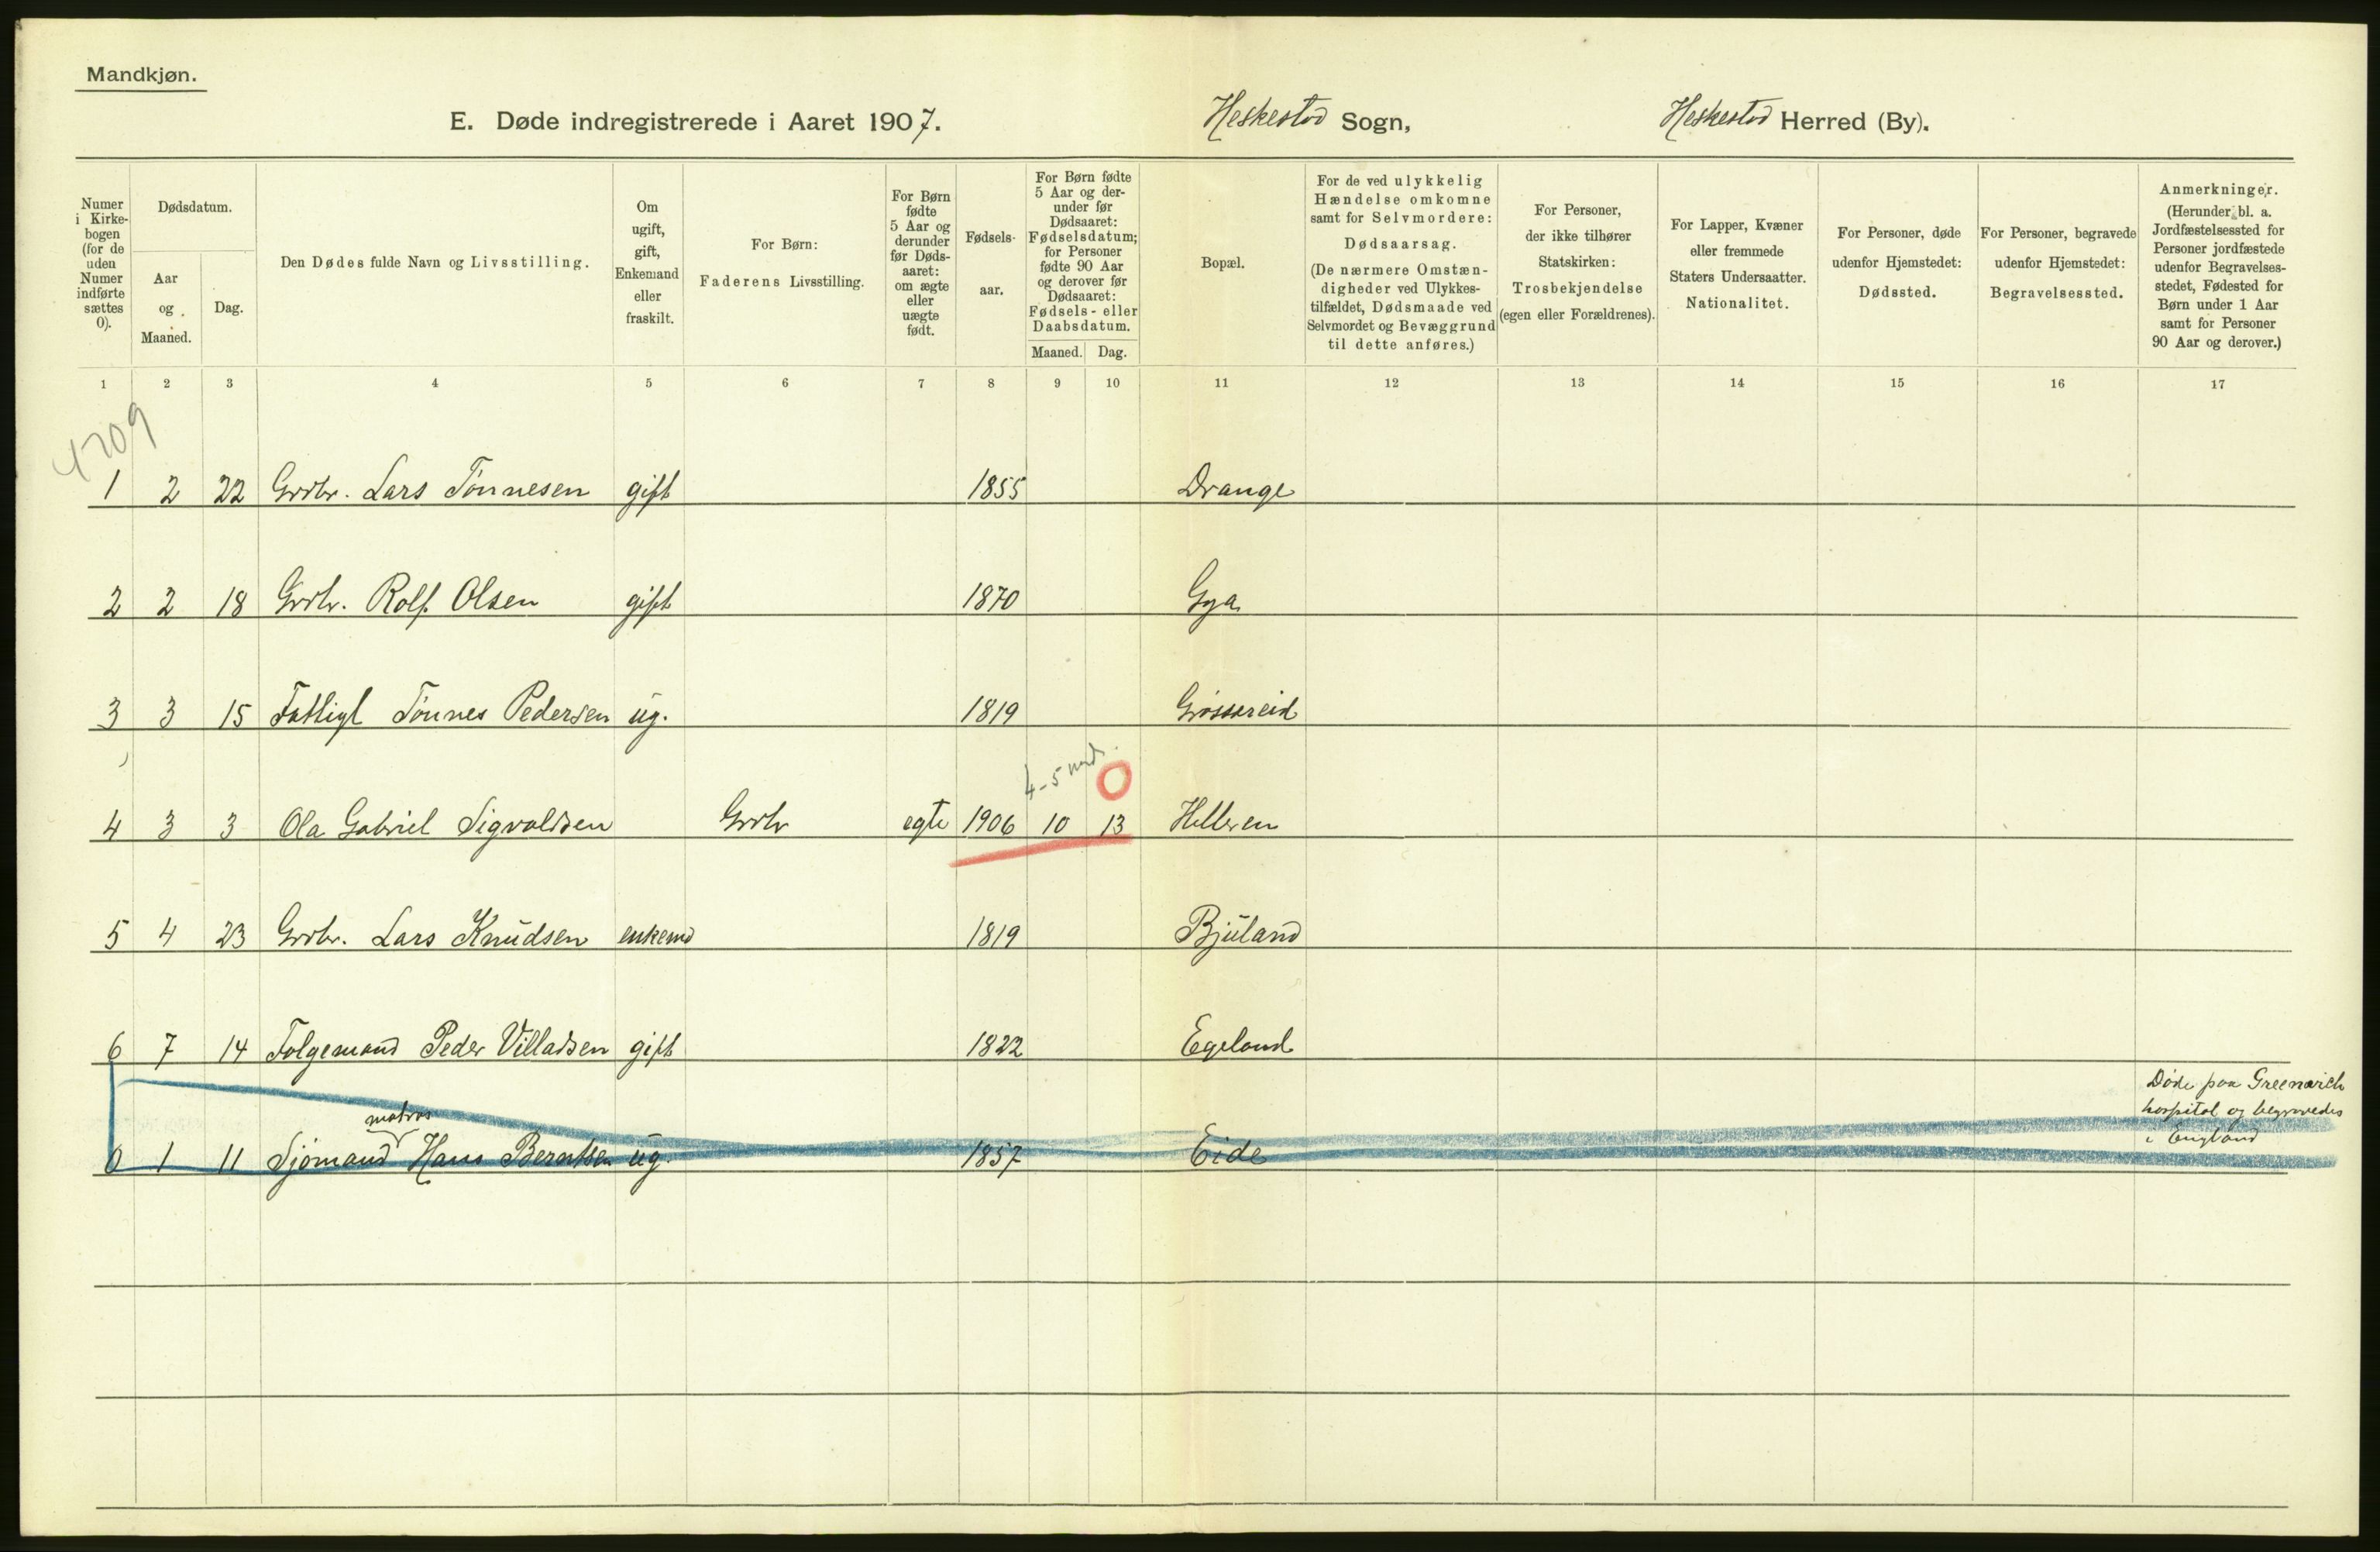 Mandkjøn.
E. Døde indregistrerede i Aaret 1907. Heskestad Sogn, Heskestad Herred (By).
Numer i Kirkebogen (for de uden Numer indførte sættes 0).
Dødsdatum.
Aar og Maaned.
Dag.
Den Dødes fulde Navn og Livsstilling.
Om ugift, gift, Enkemand eller fraskilt.
For Børn: Faderens Livsstilling.
For Børn fødte 5 Aar og derunder før Dødsaaret: om ægte eller uægte født.
Fødselsaar.
For Børn fødte 5 Aar og derunder før Dødsaaret: Fødselsdatum; for Personer fødte 90 Aar og derover før Dødsaaret: Fødsels- eller Daabsdatum.
Maaned. Dag.
Bopæl.
For de ved ulykkelig Hændelse omkomne samt for Selvmordere: Dødsaarsag. (De nærmere Omstændigheder ved Ulykkestilfældet, Dødsmaade ved Selvmordet og Bevæggrund til dette anføres.)
For Personer, der ikke tilhører Statskirken: Trosbekjendelse (egen eller Forældrenes).
For Lapper, Kvæner eller fremmede Staters Undersaatter. Nationalitet.
For Personer, døde udenfor Hjemstedet: Dødssted.
For Personer, begravede udenfor Hjemstedet: Begravelsessted.
Anmerkninger. (Herunder bl. a. Jordfæstelsessted for Personer jordfæstede udenfor Begravelsesstedet, Fødested for Børn under 1 Aar samt for Personer 90 Aar og derover.)
1 2 3 4 5 6 7 8 9 10 11 12 13 14 15 16 17
4209
1 2 22 Grdbr. Lars Tønnesen gift 1855 Drange
2 2 18 Grdbr. Rolf Olsen gift 1870 Gya
3 3 15 Fattigl Tønnes Pedersen ug. 1819
4-5 md. 0
4 3 3 Ola Gabriel Sigvaldsen Grdbr egte 1906 10 13 Helleren
5 4 23 Grdbr. Lars Knudsen enkemd 1819 Bjuland
6 7 14 Folgemand Peder Villadsen gift 1822 Egeland
matros
0 1 11 Sjømand Hans Berntsen ug. 1857 Eide
Døde paa Greenwich
hospital og begravedes
i England